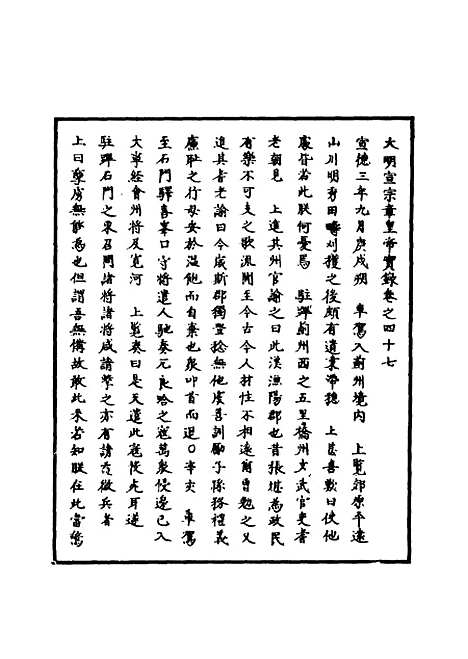 大明宣宗章皇帝實錄卷之四十七
宣德三年九月庚戌朔　車駕入薊州境內　上覽郊原平遠
山川明秀田疇刈獲之後頗有遺秉滯穗　上甚喜歎曰使他
處皆若此朕何憂焉　駐蹕薊州西之五里橋州文武官吏耆
老朝見　上進其州官諭之曰此漢漁陽郡也昔張堪為政民
有樂不可支之歌流聞至今古今人材性不相遠爾曹勉之又
進其耆老諭曰今歲斯郡獨豐稔無他虞善訓勵子孫務禮義
廉恥之行毋安於溫飽而自棄也衆叩首而退○辛亥　車駕
至石門驛喜峯口守將遣人馳奏兀良哈之寇萬衆侵邊已入
大寧經會州將及寬河　上覽奏曰是天遣此寇投死耳遂
駐蹕石門之東召問諸將諸將咸請擊之亦有請益徵兵者
上曰孽虜無能為也但謂吾無備故敢此來若知朕在此當驚